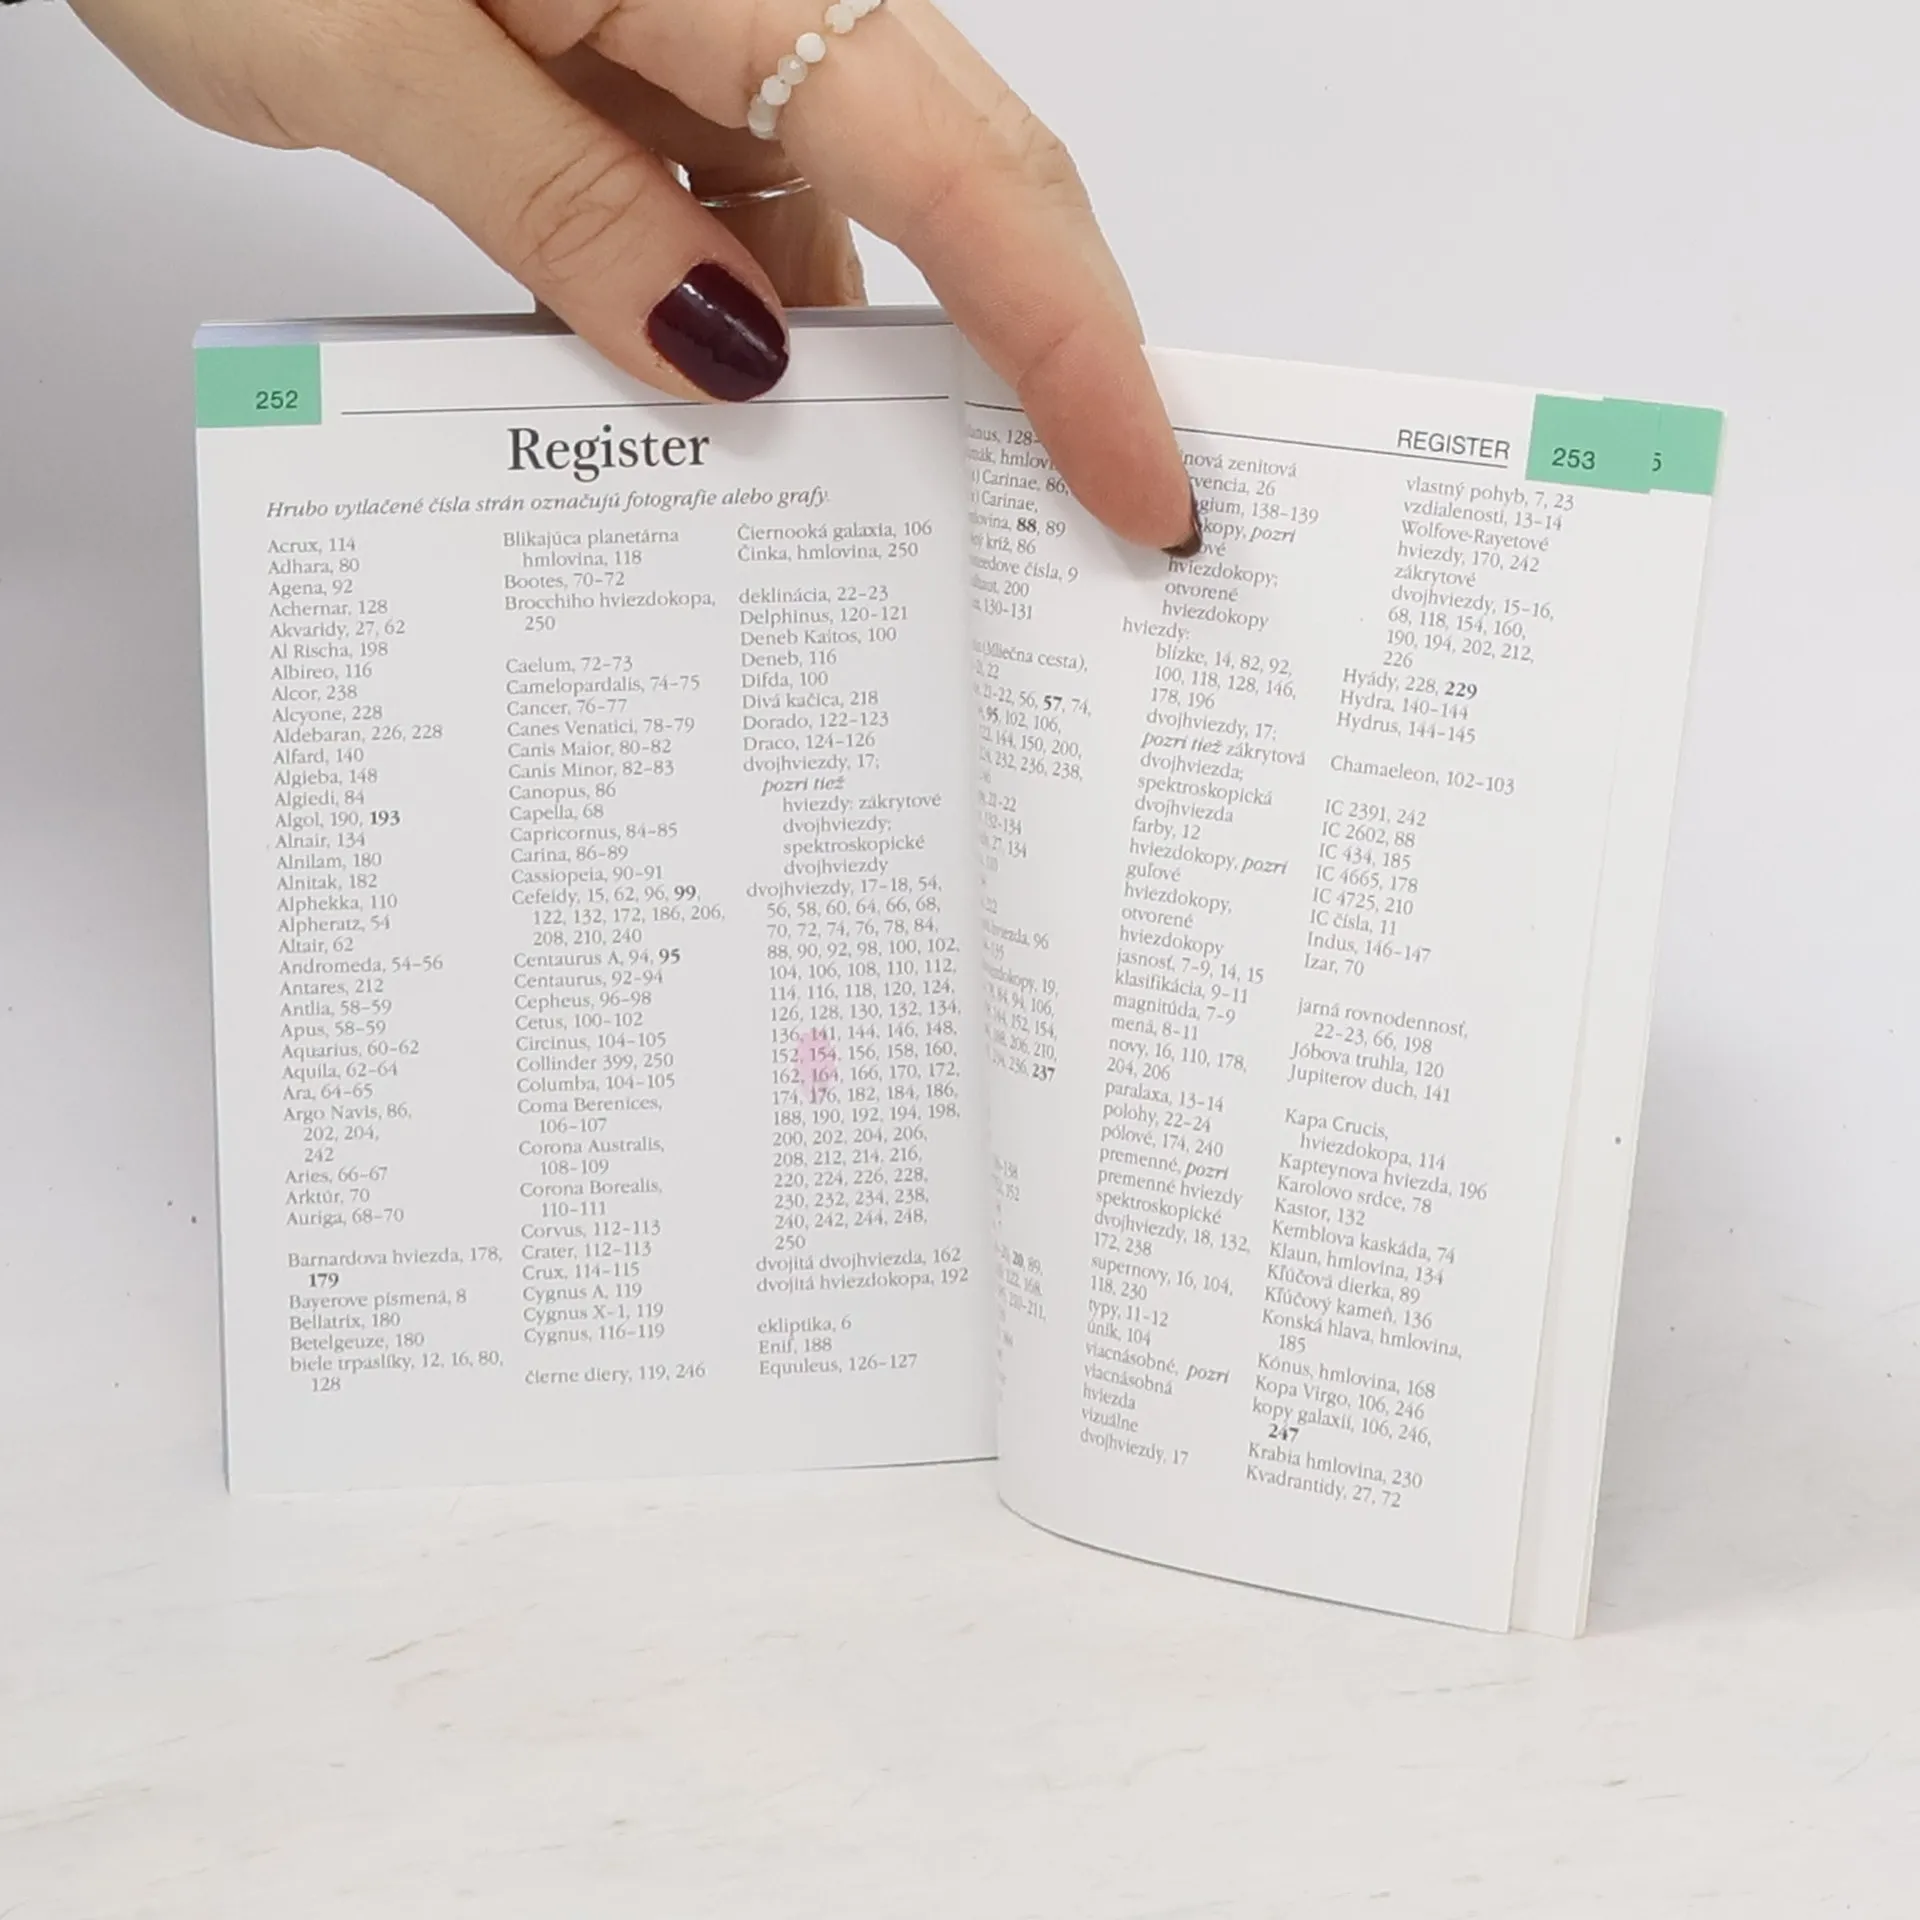 252
Register
Hrubo vytlačené čísla strán označujú fotografie alebo grafy.
Acrux, 114
Adhara, 80
Agena, 92
Achernar, 128
Akvaridy, 27, 62
Al Rischa, 198
Albireo, 116
Alcor, 238
Alcyone, 228
Aldebaran, 226, 228
Alfard, 140
Algieba, 148
Algiedi, 84
Algol, 190, 193
Alnair, 134
Alnilam, 180
Alnitak, 182
Alphekka, 110
Alpheratz, 54
Altair, 62
Andromeda, 54–56
Antares, 212
Antlia, 58–59
Apus, 58–59
Aquarius, 60–62
Aquila, 62–64
Ara, 64–65
Argo Navis, 86,
202, 204,
242
Aries, 66–67
Arktúr, 70
Auriga, 68–70
Barnardova hviezda, 178,
179
Bayerove písmená, 8
Bellatrix, 180
Betelgeuze, 180
biele trpaslíky, 12, 16, 80,
128
Blikajúca planetárna
hmlovina, 118
Bootes, 70–72
Brocchiho hviezdokopa,
250
Caelum, 72–73
Camelopardalis, 74–75
Cancer, 76–77
Canes Venatici, 78–79
Canis Maior, 80–82
Canis Minor, 82–83
Canopus, 86
Capella, 68
Capricornus, 84–85
Carina, 86–89
Cassiopeia, 90–91
Cefeidy, 15, 62, 96, 99,
122, 132, 172, 186, 206,
208, 210, 240
Centaurus A, 94, 95
Centaurus, 92–94
Cepheus, 96–98
Cetus, 100–102
Circinus, 104–105
Collinder 399, 250
Columba, 104–105
Coma Berenices,
106–107
Corona Australis,
108–109
Corona Borealis,
110–111
Corvus, 112–113
Crater, 112–113
Crux, 114–115
Cygnus A, 119
Cygnus X-1, 119
Cygnus, 116–119
čierne diery, 119, 246
Čiernooká galaxia, 106
Činka, hmlovina, 250
deklinácia, 22–23
Delphinus, 120–121
Deneb Kaitos, 100
Deneb, 116
Difda, 100
Divá kačica, 218
Dorado, 122–123
Draco, 124–126
dvojhviezdy, 17;
pozri tiež
hviezdy: zákrytové
dvojhviezdy;
spektroskopické
dvojhviezdy
dvojhviezdy, 17–18, 54,
56, 58, 60, 64, 66, 68,
70, 72, 74, 76, 78, 84,
88, 90, 92, 98, 100, 102,
104, 106, 108, 110, 112,
114, 116, 118, 120, 124,
126, 128, 130, 132, 134,
136, 141, 144, 146, 148,
152, 154, 156, 158, 160,
162, 164, 166, 170, 172,
174, 176, 182, 184, 186,
188, 190, 192, 194, 198,
200, 202, 204, 206,
208, 212, 214, 216,
220, 224, 226, 228,
230, 232, 234, 238,
240, 242, 244, 248,
250
dvojitá dvojhviezda, 162
dvojitá hviezdokopa, 192
ekliptika, 6
Enif, 188
Equuleus, 126–127
REGISTER
253
5
Carinae, 86,
Carinae,
88, 89
kríž, 86
čísla, 9
200
130–131
(Mliečna cesta),
22
21–22, 56, 57, 74,
95, 102, 106,
144, 150, 200,
232, 236, 238,
21–22
132–134
27, 134
hviezda, 96
19,
94, 106,
152, 154,
206, 210,
236, 237
zenitová
26
138–139
pozri
hviezdokopy;
otvorené
hviezdokopy
hviezdy:
blízke, 14, 82, 92,
100, 118, 128, 146,
178, 196
dvojhviezdy, 17;
pozri tiež zákrytová
dvojhviezda;
spektroskopická
dvojhviezda
farby, 12
hviezdokopy, pozri
guľové
hviezdokopy,
otvorené
hviezdokopy
jasnosť, 7–9, 14, 15
klasifikácia, 9–11
magnitúda, 7–9
mená, 8–11
novy, 16, 110, 178,
204, 206
paralaxa, 13–14
polohy, 22–24
pólové, 174, 240
premenné, pozri
premenné hviezdy
spektroskopické
dvojhviezdy, 18, 132,
172, 238
supernovy, 16, 104,
118, 230
typy, 11–12
únik, 104
viacnásobné, pozri
viacnásobná
hviezda
vizuálne
dvojhviezdy, 17
vlastný pohyb, 7, 23
vzdialenosti, 13–14
Wolfove-Rayetové
hviezdy, 170, 242
zákrytové
dvojhviezdy, 15–16,
68, 118, 154, 160,
190, 194, 202, 212,
226
Hyády, 228, 229
Hydra, 140–144
Hydrus, 144–145
Chamaeleon, 102–103
IC 2391, 242
IC 2602, 88
IC 434, 185
IC 4665, 178
IC 4725, 210
IC čísla, 11
Indus, 146–147
Izar, 70
jarná rovnodennosť,
22–23, 66, 198
Jóbova truhla, 120
Jupiterov duch, 141
Kapa Crucis,
hviezdokopa, 114
Kapteynova hviezda, 196
Karolovo srdce, 78
Kastor, 132
Kemblova kaskáda, 74
Klaun, hmlovina, 134
Kľúčová dierka, 89
Kľúčový kameň, 136
Konská hlava, hmlovina,
185
Kónus, hmlovina, 168
Kopa Virgo, 106, 246
kopy galaxií, 106, 246,
247
Krabia hmlovina, 230
Kvadrantidy, 27, 72